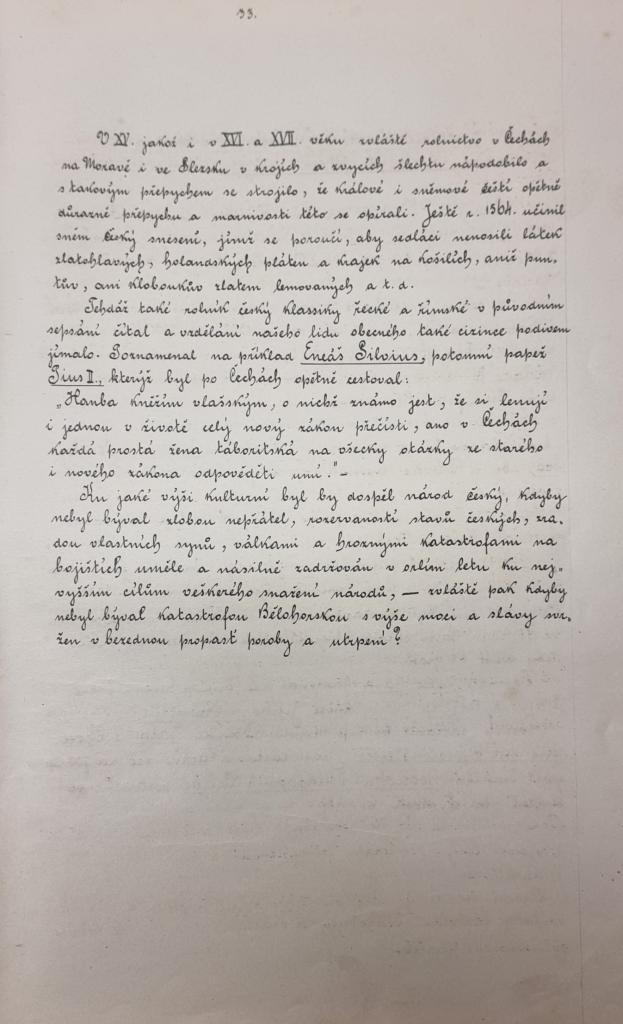 33.
V XV. jakož i v XVI. a XVII. věku zvláště rolnictvo v Čechách
na Moravě i ve Slezsku v krojích a zvycích šlechtu nápodobilo a
s takovým přepychem se strojilo, že králové i sněmové čeští opětně
důrazně přepychu a marnivosti této se opírali. Ještě r. 1564. učinil
sněm český snesení, jímž se poroučí, aby sedláci nenosili látek
zlatohlavých, holandských pláten a krajek na košilích, aniž pun-
tův, ani kloboukův zlatem lemovaných a t. d.
Tehdáž také rolník český klassiky řecké a římské v původním
sepsání čítal a vzdělání našeho lidu obecného také cizince podivem
jímalo. Poznamenal na příklad Eneáš Silvius, potomní papež
Pius II., kterýž byl po Čechách opětně cestoval:
„Hanba kněžím vlašským, o nichž známo jest, že si lenují
i jednou v životě celý nový zákon přečísti, ano v Čechách
každá prostá žena táboritská na všecky otázky ze starého
i nového zákona odpověděti umí." –
Ku jaké výši kulturní byl by dospěl národ český, kdyby
nebyl býval zlobou nepřátel, rozervaností stavů českých, zra-
dou vlastních synů, válkami a hroznými katastrofami na
bojištích uměle a násilně zadržován v orlím letu ku nej-
vyšším cílům veškerého snažení národů, — zvláště pak kdyby
nebyl býval katastrofou Bělohorskou s výše moci a slávy svr-
žen v bezednou propast poroby a utrpení?